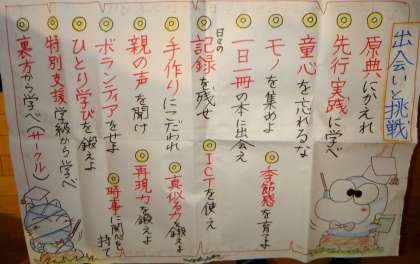 出会いと挑戦
原典にかえれ
先行実践に学べ
童心を忘れるな
モノを集めよ
季節感を育てよ
一日一冊の本に出会え
日々の記録を残せ
ICTを使え
手作りにこだわれ
真似る力を鍛えよ
親の声を聞け
再現力を鍛えよ
ボランティアをせよ
時事に関心を持て
ひとり学びを鍛えよ
特別支援学級から学べ
裏方から学べ(サークル)